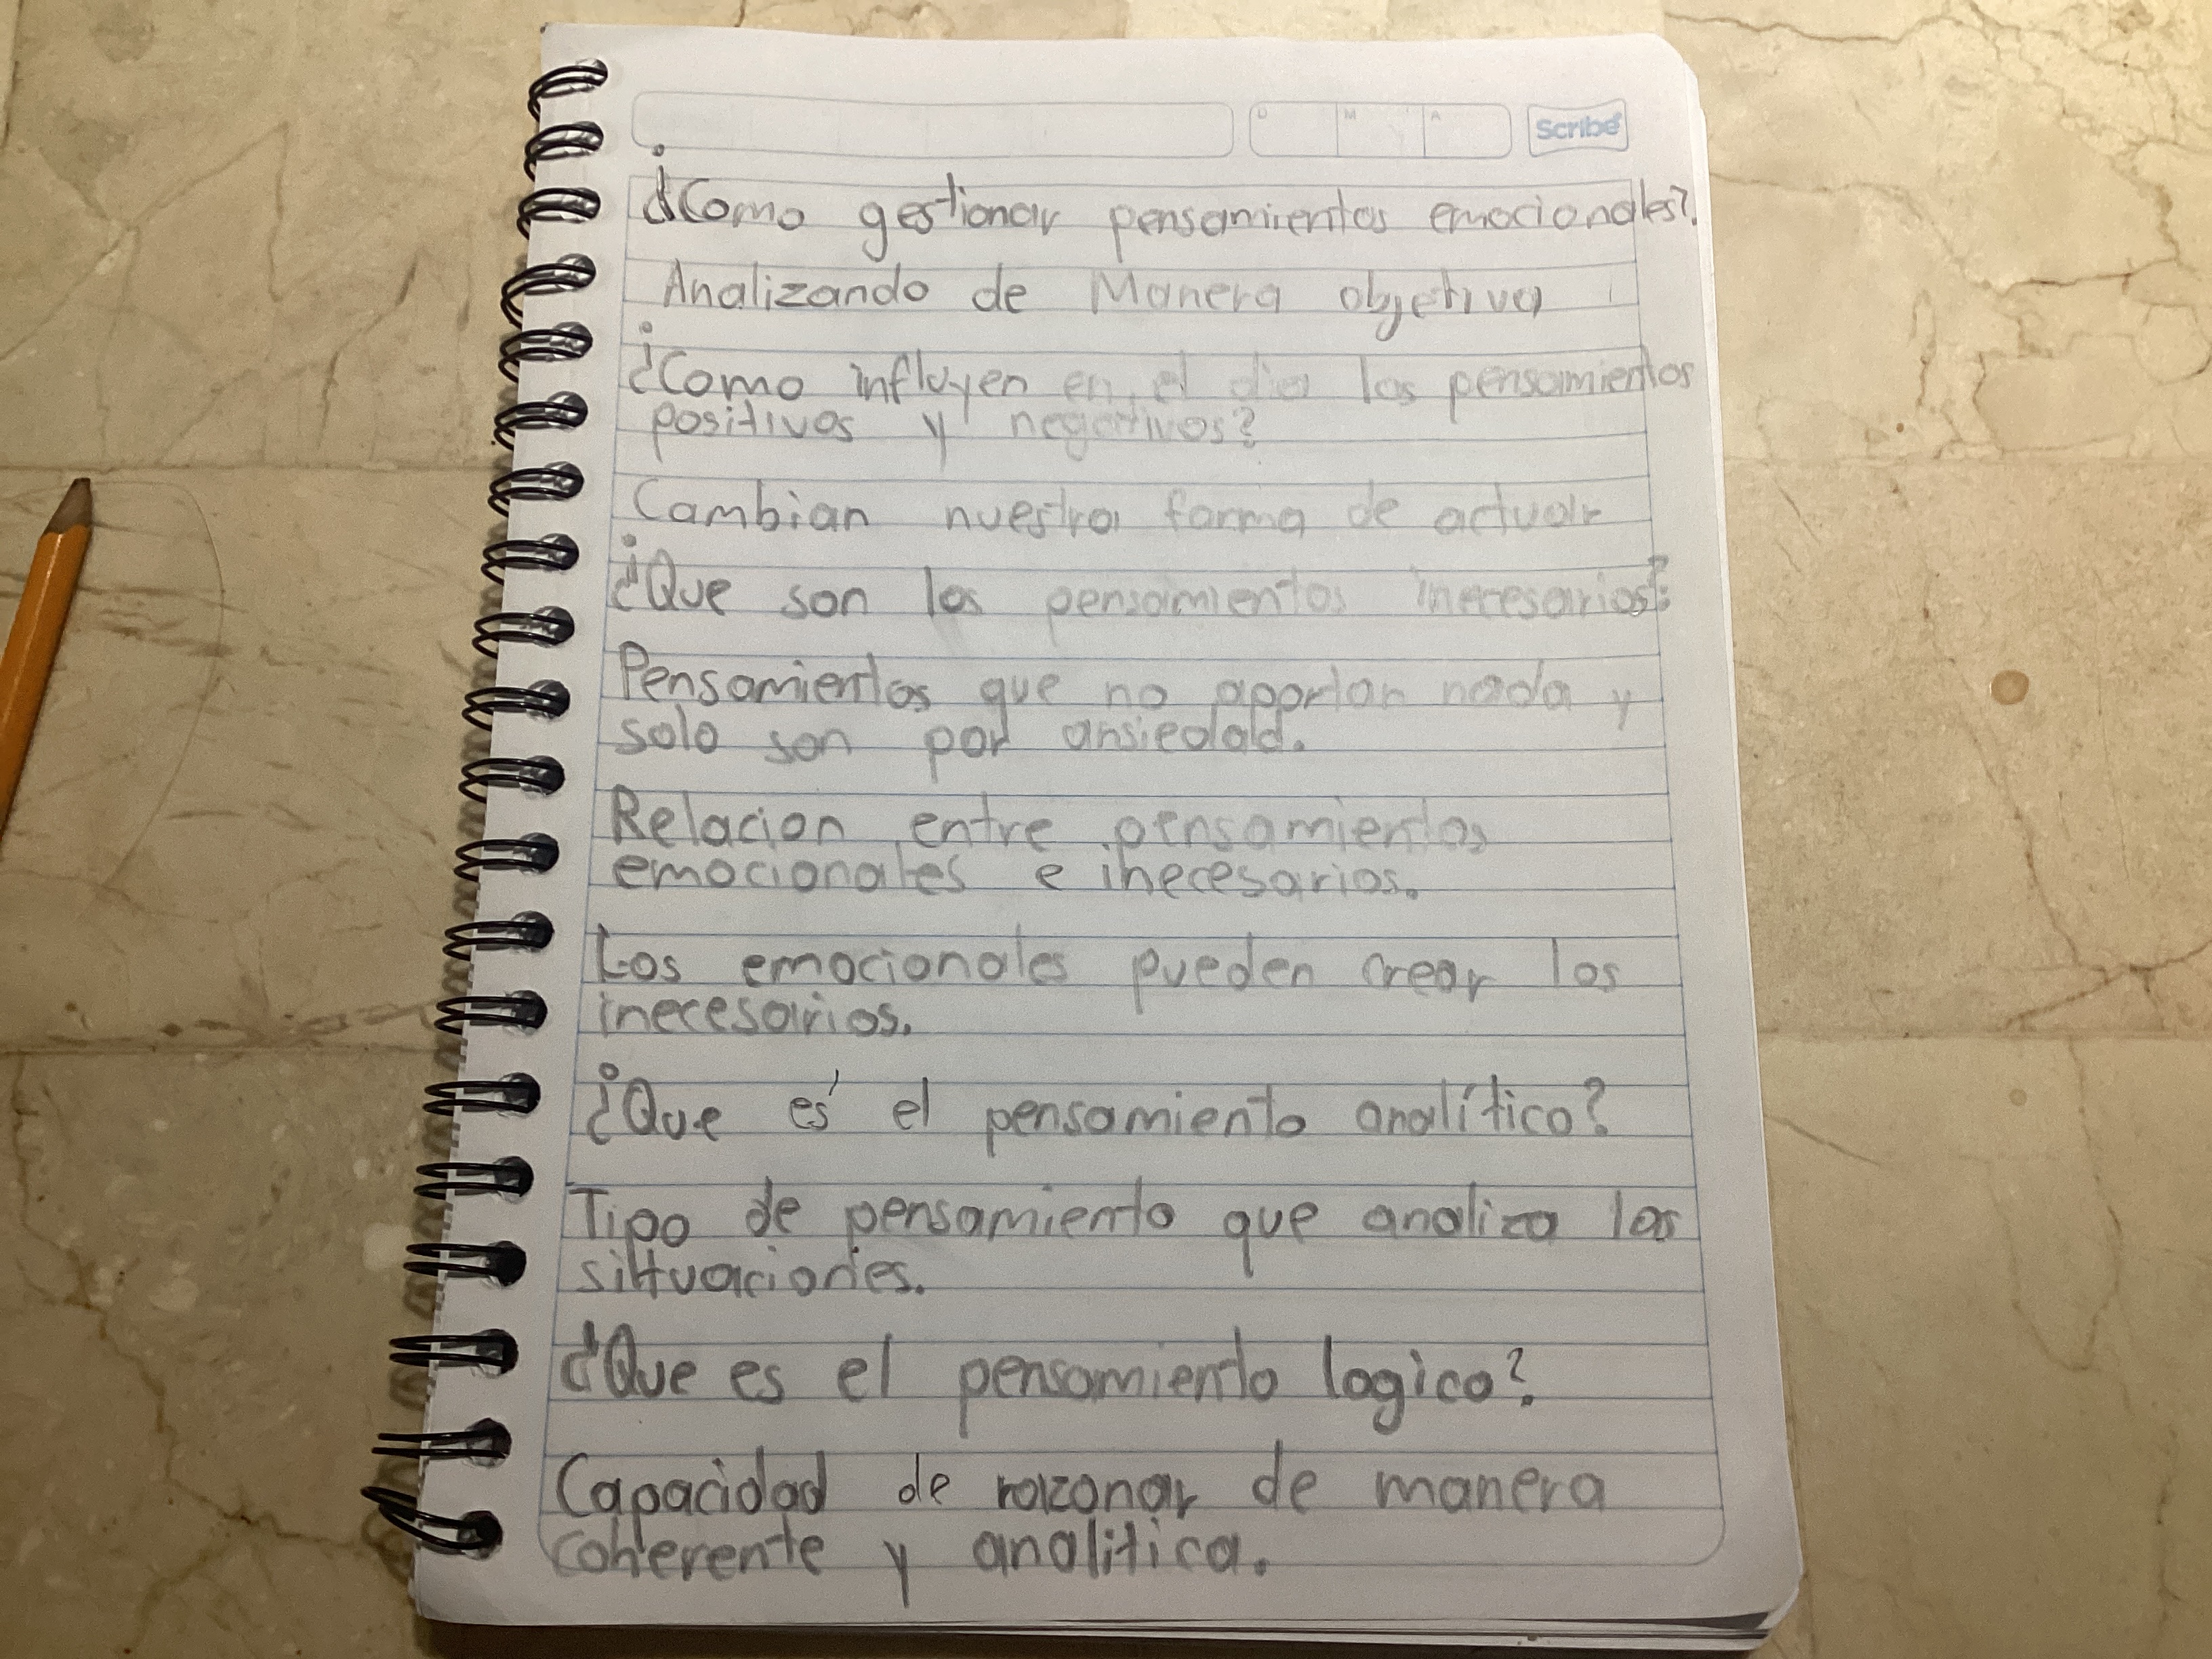 D M A Scribe
¿Como gestionar pensamientos emocionales?
Analizando de Manera objetiva
¿Como influyen en el dia los pensamientos
positivos y negativos?
Cambian nuestra forma de actuar
¿Que son los pensamientos inecesarios?
Pensamientos que no aportan nada y
solo son por ansiedad.
Relacion entre pensamientos
emocionales e inecesarios.
Los emocionales pueden crear los
inecesarios.
¿Que es el pensamiento analítico?
Tipo de pensamiento que analiza las
situaciones.
¿Que es el pensamiento logico?
Capacidad de razonar de manera
coherente y analitica.